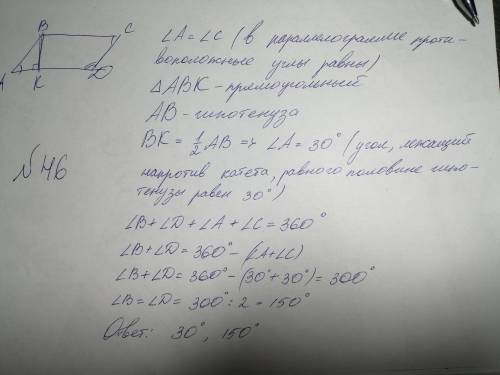 B C
A K D
∠A = ∠C (в параллелограмме проти-
воположные углы равны)
△ABK - прямоугольный
AB - гипотенуза
BK = 1/2 AB => ∠A = 30° (угол, лежащий
напротив катета, равного половине гипо-
тенузы равен 30°)
№46
∠B + ∠D + ∠A + ∠C = 360°
∠B + ∠D = 360° - (∠A + ∠C)
∠B + ∠D = 360° - (30° + 30°) = 300°
∠B = ∠D = 300° : 2 = 150°
Ответ: 30°, 150°